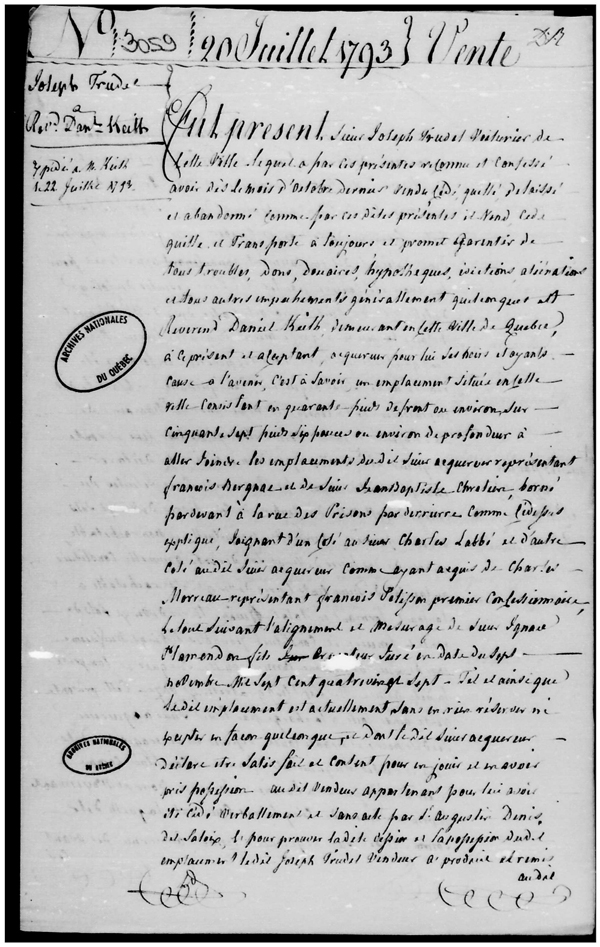 No. 3059 20 Juillet 1793 Vente
Joseph Trudel
a
Revd. Danl. Keith
Expédié a M. Keith
le 22 Juillet 1793.
Fut present Sieur Joseph Trudel Voiturier de
Cette Ville lequel a par ces présentes reconnu et Confessé
avoir dès le mois d'Octobre dernier vendu Cédé, quitté, delaissé
et abandonné comme par ces dites présentes il Vend, Cede
quitte, et Transporte à toujours et promet Garentir de
tous troubles, Dons, Douaires, hypotheques, évictions, alienations
et tous autres empechements générallement quelconques au
Reverend Daniel Keith, demeurant en Cette Ville de Quebec,
à Ce présent et acceptant, acquereur pour lui ses hoirs et ayants
Cause a l'avenir, C'est à Savoir un emplacement Situé en Cette
ville Consistant en quarante pieds de front ou environ, Sur
Cinquante Sept pieds Six pouces ou environ de profondeur à
aller Joindre les emplacements du dit Sieur acquereur représentant
françois Borgnac et de Sieur Jean Baptiste Chretien, borné
pardevant à la rue des Prisons par derrierre Comme Cidessus
expliqué, Joignant d'un Coté au Sieur Charles Labbé et d'autre
Coté au dit Sieur acquereur Comme ayant acquis de Charles
Morreau représentant françois Pelisson premier Concessionnaire,
Le tout Suivant l'alignement et Mesurage de Sieur Ignace
Plamondon fils Arpenteur Juré en date du Sept
novembre Mil Sept Cent quatrevingt Sept Tel et ainsi que
Le dit emplacement est actuellement, Sans en rien réserver ni
excepter en façon quelconque, et dont le dit Sieur acquereur
déclare etre Satisfait et Content pour en Jouir et en avoir
pris possession au dit Vendeur appartenant pour lui avoir
été Cédé Verballement et Sans acte par Sr. Augustin Denis
dit Lafoix, Et pour prouver la dite Cession et la possession du dit
emplacement le dit Joseph Trudel Vendeur a produit et remis
au dit
ARCHIVES NATIONALES
DU QUÉBEC
ARCHIVES NATIONALES
DU QUÉBEC